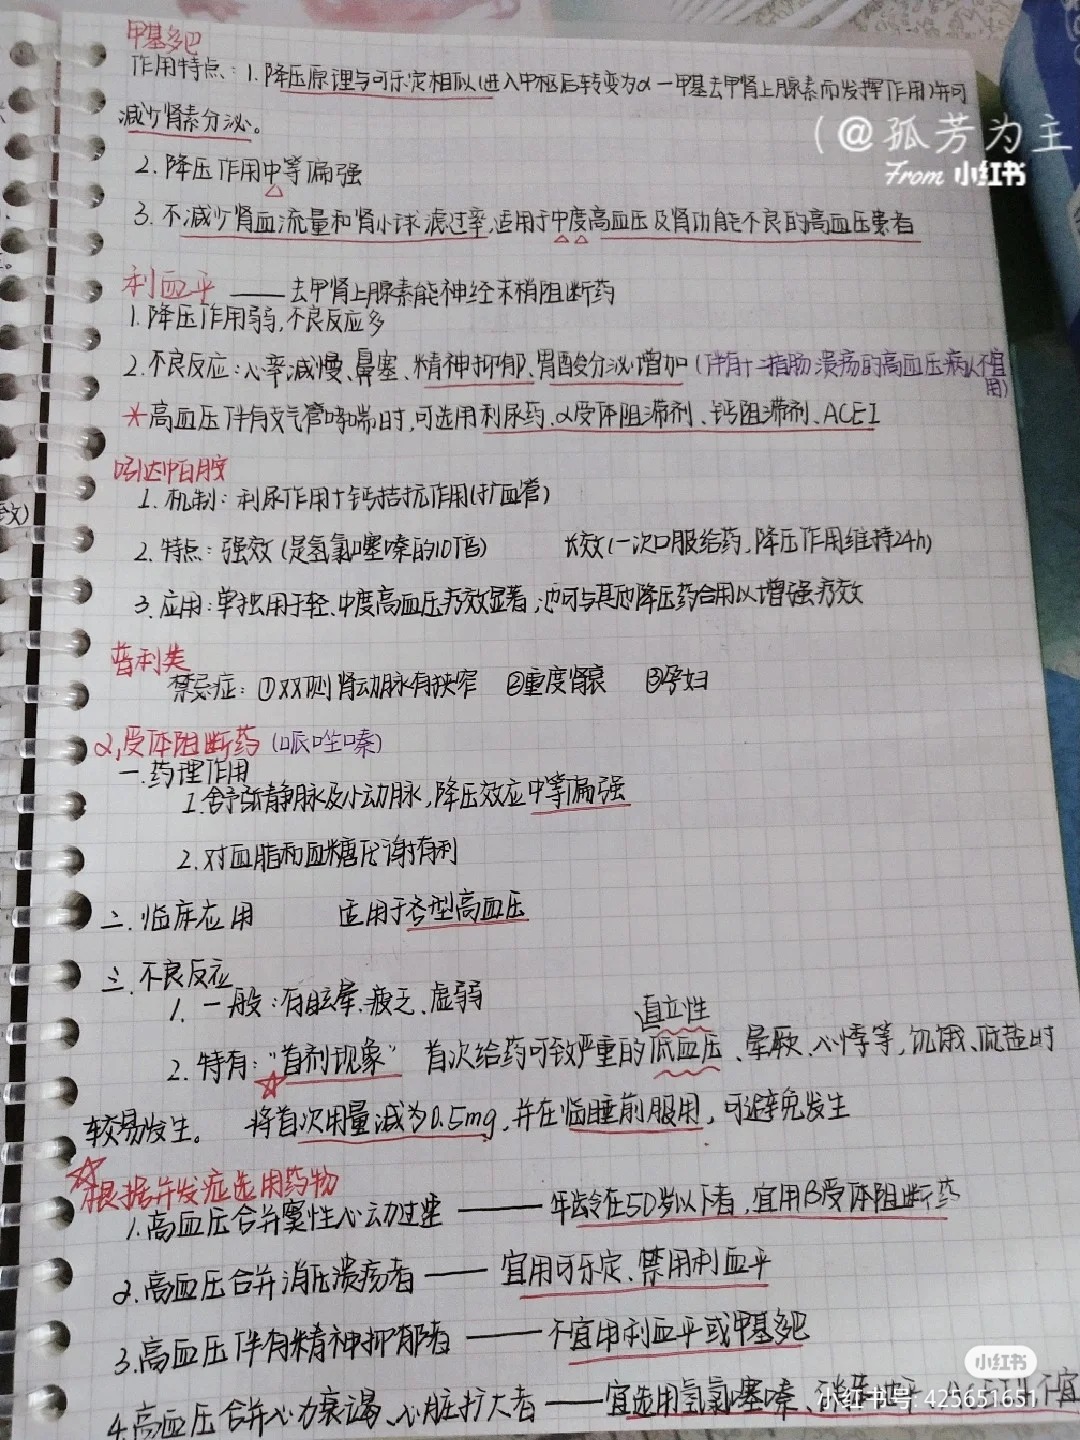 甲基多巴
作用特点：1.降压原理与可乐定相似(进入中枢后转变为α-甲基去甲肾上腺素而发挥作用)并可
减少肾素分泌。
(@孤芳为主
From 小红书
2.降压作用中等偏强
3.不减少肾血流量和肾小球滤过率,适用于中度高血压及肾功能不良的高血压患者
利血平 —— 去甲肾上腺素能神经末梢阻断药
1.降压作用弱,不良反应多
2.不良反应:心率减慢、鼻塞、精神抑郁、胃酸分泌增加(伴有十二指肠溃疡的高血压病人不宜
用)
*高血压伴有支气管哮喘时,可选用利尿药、α受体阻滞剂、钙阻滞剂、ACEI
吲达帕胺
1.机制:利尿作用+钙拮抗作用(扩血管)
2.特点:强效(是氢氯噻嗪的10倍) 长效(一次口服给药,降压作用维持24h)
3.应用:单独用于轻、中度高血压疗效显著,也可与其他降压药合用以增强疗效
普利类
禁忌症:①双侧肾动脉有狭窄 ②重度肾衰 ③孕妇
α₁受体阻断药(哌唑嗪)
一.药理作用
1.舒张静脉及小动脉,降压效应中等偏强
2.对血脂和血糖代谢有利
二.临床应用 适用于各型高血压
三.不良反应
1.一般:有眩晕、疲乏、虚弱
直立性
2.特有:"首剂现象" 首次给药可致严重的低血压、晕厥、心悸等,饥饿、低盐时
较易发生。 将首次用量减为0.5mg,并在临睡前服用,可避免发生
☆根据并发症选用药物
1.高血压合并窦性心动过速 —— 年龄在50岁以下者,宜用β受体阻断药
2.高血压合并消化溃疡者 —— 宜用可乐定、禁用利血平
3.高血压伴有精神抑郁者 —— 不宜用利血平或甲基多巴
小红书
4.高血压合并心力衰竭、心脏扩大者 —— 宜选用氢氯噻嗪、 不宜
小红书号: 425651651